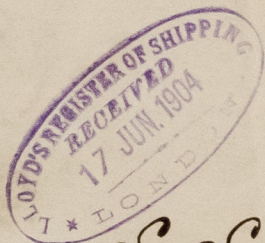 LLOYD'S REGISTER OF SHIPPING
RECEIVED
17 JUN. 1904
LONDON